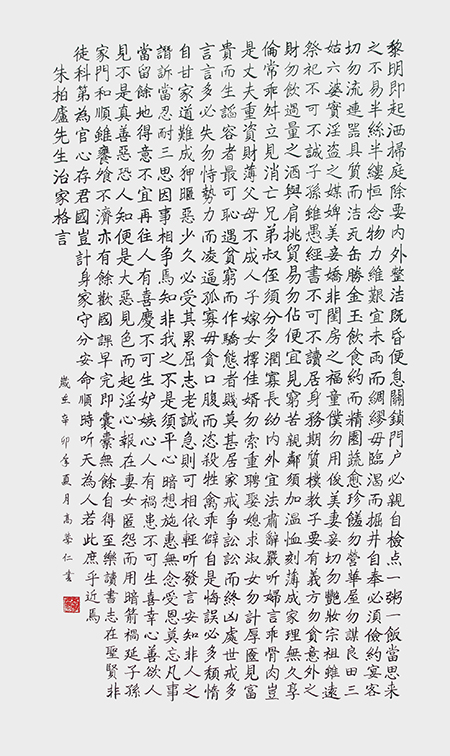 黎明即起洒掃庭除要內外整洁既昏便息關鎖門户必親自檢点一粥一飯當思来
之不易半絲半縷恒念物力維艱宜未雨而綢繆毋臨渴而掘井自奉必須儉約宴客
切勿流連器具質而洁瓦缶勝金玉飲食約而精園蔬愈珍饈勿營華屋勿謀良田三
姑六婆實淫盗之媒婢美妾嬌非閨房之福童僕勿用俊美妻妾切勿艷妝宗祖雖遠
祭祀不可不誠子孫雖愚經書不可不讀居身務期質樸教子要有義方勿貪意外之
財勿飲過量之酒與肩挑貿易勿佔便宜見窮苦親鄰須加溫恤刻薄成家理無久享
倫常乖舛立見消亡兄弟叔侄須分多潤寡長幼內外宜法肅辭嚴听婦言乖骨肉豈
是丈夫重資財薄父母不成人子嫁女擇佳婿勿索重聘娶媳求淑女勿計厚匳見富
貴而生諂容者最可恥遇貧窮而作驕態者賤莫甚居家戒争訟訟而終凶處世戒多
言言多必失勿恃勢力而凌逼孤寡毋貪口腹而恣殺牲禽乖僻自是悔誤必多頹惰
自甘家道難成狎匿惡少久必受其累屈志老誠急則可相依輕听發言安知非人之
譖訴當忍耐三思因事相争焉知非我之不是須平心暗想施惠無念受恩莫忘凡事
當留餘地得意不宜再往人有喜慶不可生妒嫉心人有禍患不可生喜幸心善欲人
見不是真善惡恐人知便是大惡見色而起淫心報在妻女匿怨而用暗箭禍延子孫
家門和順雖饔飧不濟亦有餘歡國課早完即囊橐無餘自得至樂讀書志在聖賢非
徒科第為官心存君國豈計身家守分安命順時听天為人若此庶乎近焉
朱柏廬先生治家格言
歲在辛卯年夏月高荣仁書